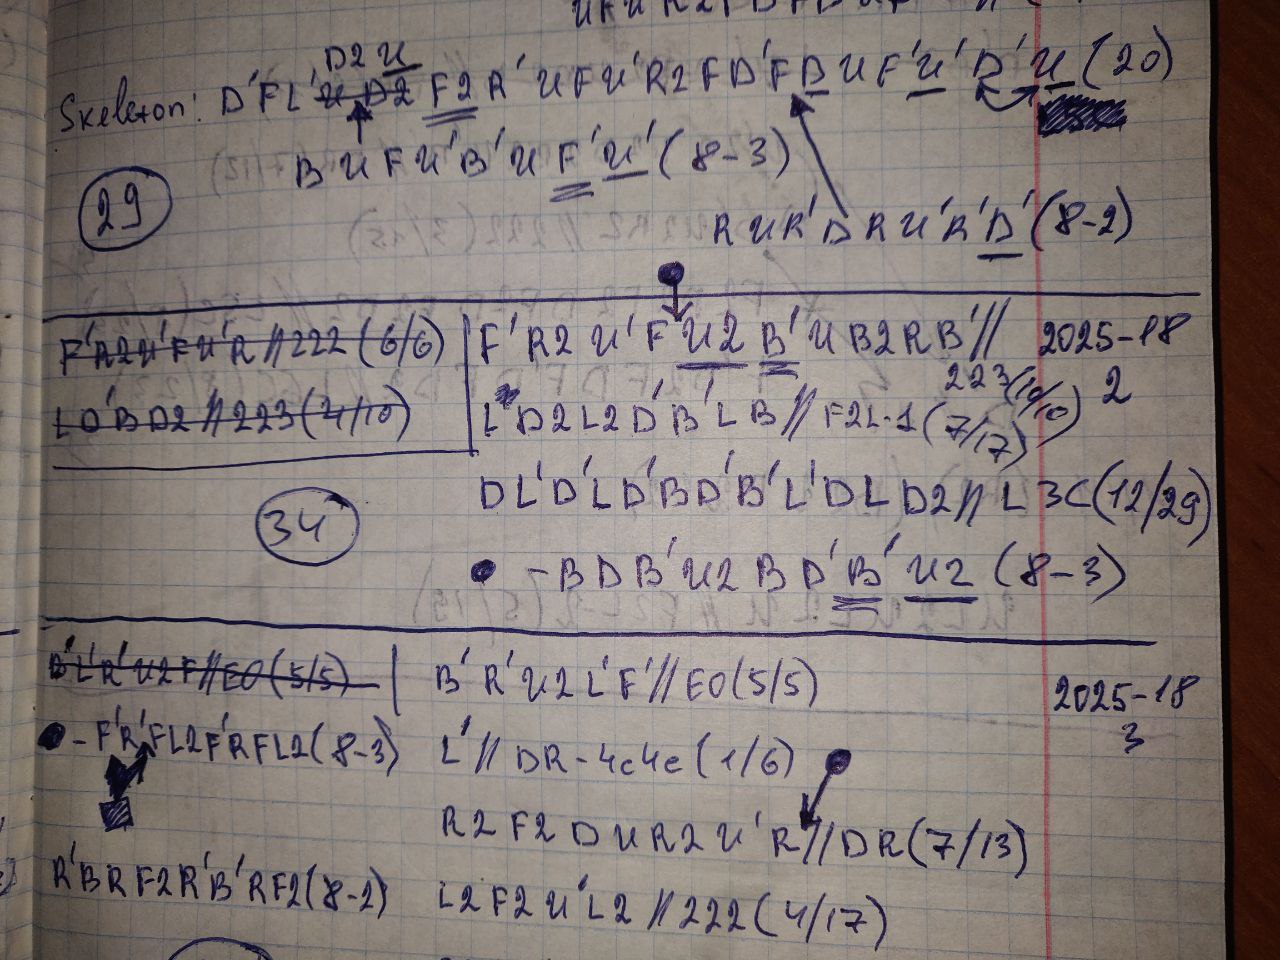 U F U R2 F D F D U F
D2 U
Skeleton: D' F L' U D2 F2 R' U F U' R2 F D' F D U F' U' D' U (20)
B U F U' B' U F' U' (8-3)
29
R U R' D R U' R' D' (8-2)
F' R2 U' F U' R // 222 (6/6)
F' R2 U' F' U2 B' U B2 R B' // 2025-18
223 (10/10) 2
L D' B D2 // 223 (4/10)
L' D2 L2 D' B' L B // F2L-1 (7/17)
D L' D' L D' B D' B' L' D L D2 // L3C (12/29)
34
- B D B' U2 B D' B' U2 (8-3)
B' L' R' U2 F // EO (5/5)
B' R' U2 L' F' // EO (5/5)
2025-18
3
- F' R' F L2 F' R F L2 (8-3)
L' // DR-4c4e (1/6)
R2 F2 D U R2 U' R // DR (7/13)
R' B R F2 R' B' R F2 (8-2)
L2 F2 U' L2 // 222 (4/17)